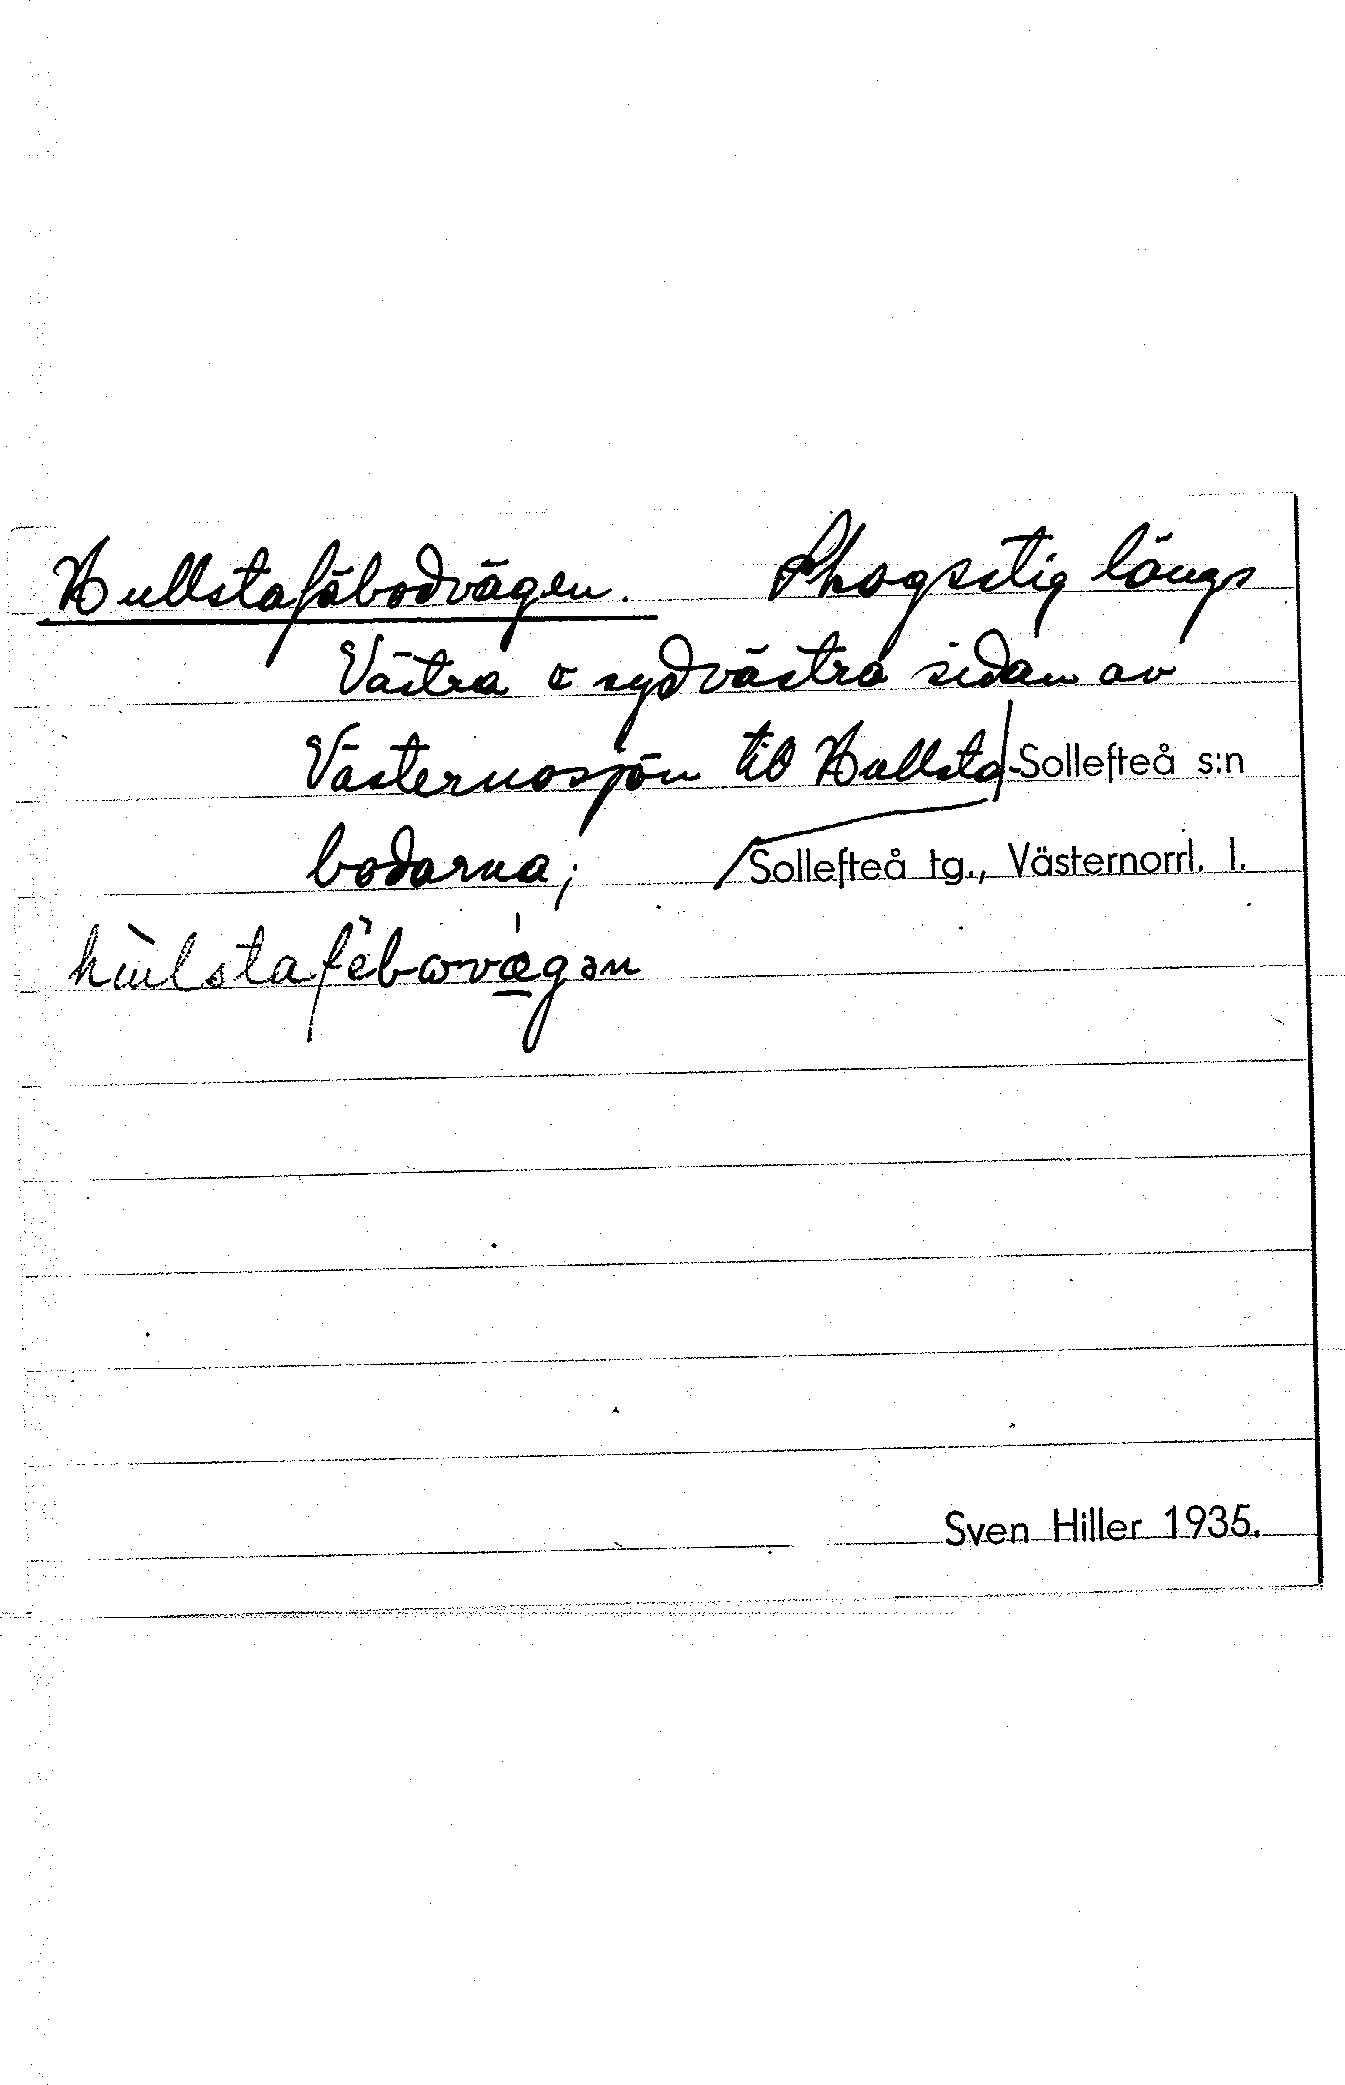 Hullstafäbodvägen. Skogsstig längs
Västra & sydvästra sidan av
Västernosjön till Hullsta-
Sollefteå s:n
bodarna;
Sollefteå tg., Västernorrl. l.
Sven Hiller 1935.